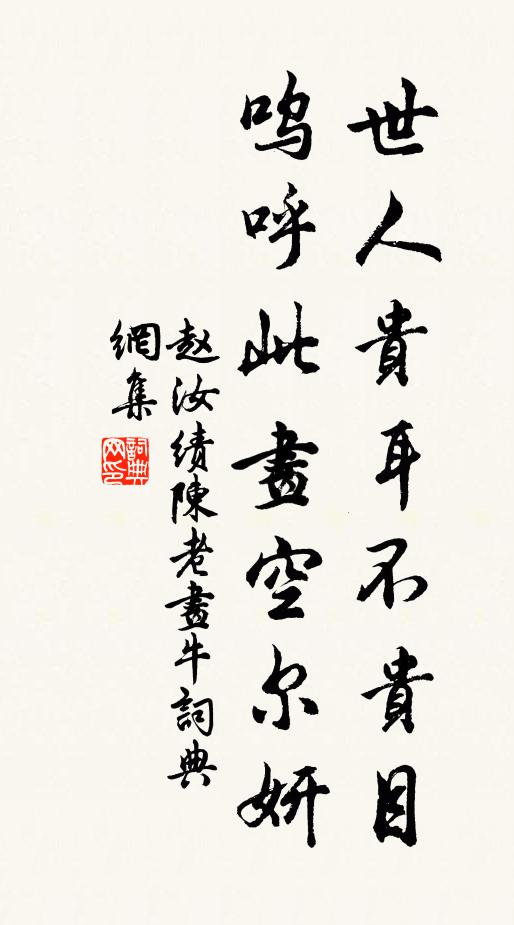 世人貴耳不貴目
嗚呼此畫空尔妍
赵汝績陳老畫牛詞典
網集
詞典網印